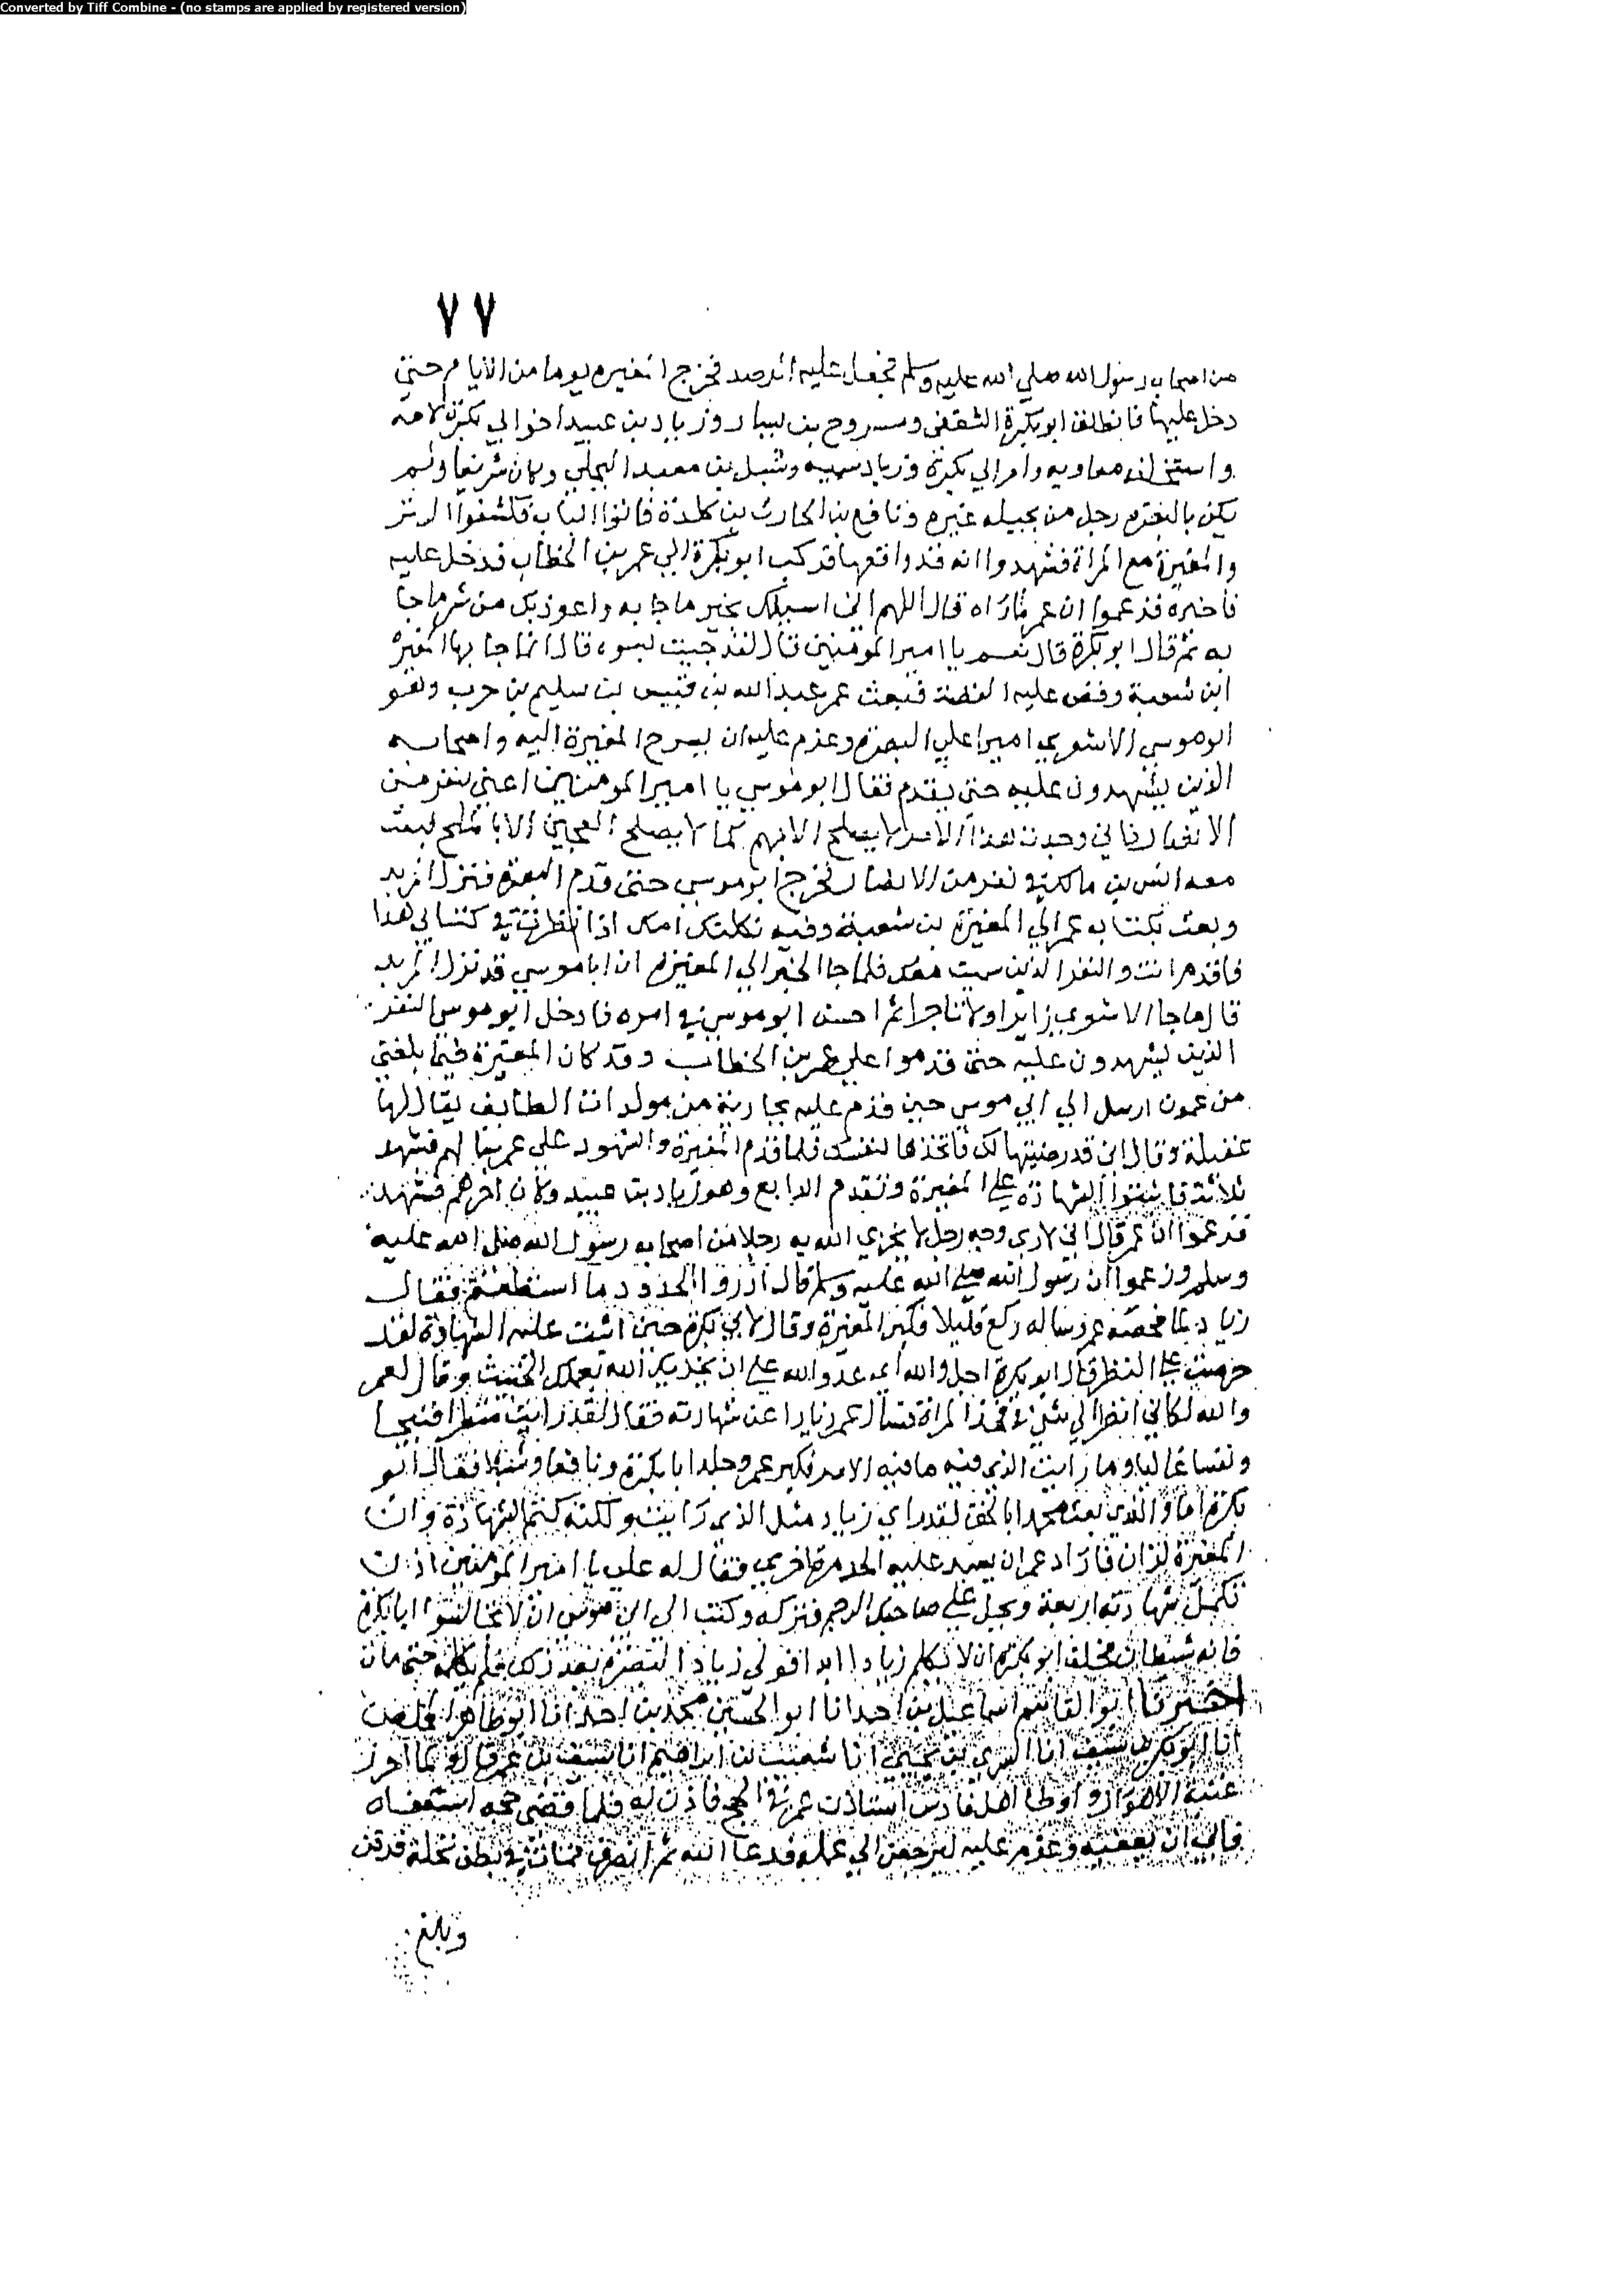 Converted by Tiff Combine - (no stamps are applied by registered version)
٧٧
من اصحاب رسول الله صلي الله عليه وسلم فجعل عليه الرصد فخرج المغيره يوما من الايام حتي
دخل عليها فانطلق ابو بكرة الثقفي ومسروح بن يسار وزياد بن عبيد اخو ابي بكرة لامه
واستخلف معاويه وام ابي بكرة وزياد سميه وشبل بن معبد البجلي وكان شريفا ولم
يكن بالبصره رجل من بجيله غيره ونافع بن الحارث بن كلدة فاتوا الباب فكشفوا الستر
والمغيرة مع المراة فشهدوا انه قد واقعها فركب ابو بكرة الي عمر بن الخطاب فدخل عليه
فاخبره فزعموا ان عمر لما راه قال اللهم اني اسيلك بخير ما جا به واعوذ بك من شر ما جا
به ثم قال ابو بكرة قال نعم يا امير المومنين قال لقد جيت لسوء قال انما جا بها المغيرة
ابن شعبة وقص عليه القصة فبعث عمر عبد الله بن قيس بن سليم بن حرب وهو
ابو موسي الاشعري اميرا علي البصره وعزم عليه ان يسرح المغيرة اليه واصحابه
الذين يشهدون عليه حتي يقدم فقال ابو موسي يا امير المومنين اعني بنفر من
الانصار فاني وجدت هذا الامر لا يصلح الا بهم كما لا يصلح العجين الا بالملح فبعث
معه انس بن مالك في نفر من الانصار فخرج ابو موسي حتي قدم البصره فنزل المربد
وبعث بكتاب عمر الي المغيرة بن شعبة وفيه ثكلتك امك اذا نظرت في كتابي هذا
فاقدم انت والنفر الذين سميت معك فلما جا الخبر الي المغيره ان ابا موسي قد نزل المربد
قال ما جا الاشعري زايرا ولا تاجرا ثم احسن ابو موسي في امره فادخل ابو موسي النفر
الذين يشهدون عليه حتي قدموا علي عمر بن الخطاب وقد كان المغيرة فيما بلغني
من عمون ارسل الي ابي موسي حين قدم عليه بجارية من مولدات الطايف يقال لها
عقيلة وقال اني قد رضيتها لك فاتخذها لنفسك فلما قدم المغيرة والشهود علي عمر لهم فشهد
ثلاثة فاثبتوا الشهادة علي المغيرة وتقدم الرابع وهو زياد بن عبيد وكان اخرهم فشهد
فزعموا ان عمر قال اني لاري وجه رجل لا يخزي الله به رجلا من اصحاب رسول الله صلي الله عليه
وسلم وزعموا ان رسول الله صلي الله عليه وسلم قال ادرؤا الحدود ما استطعتم فقال
زياد فساله ركع قليلا فكبر المغيرة وقال لابي بكرة حين اثبت عليه الشهادة لقد
حرصت علي النظر قال ابو بكرة اجل والله اي عدو الله علي ان يخزيك الله بعملك الخبيث وقال لعمر
والله لكاني انظر الي شي في فخذ المراة فسال عمر زيادا عن شهادته فقال لقد رايت منظرا قبيحا
ونفسا عاليا وما رايت الذي فيه ما فيه الامر فكبر عمر وجلد ابا بكرة ونافعا وشبلا فقال ابو
بكرة اما والذي بعث محمدا بالحق لقد راي زياد مثل الذي رايت ولكنه كتم الشهادة وان
المغيرة لزان فاراد عمر ان يعيد عليه الحد مرة اخري فقال له علي يا امير المومنين اذن
تكمل شهادته اربعة ويحل علي صاحبك الرجم فتركه وكتب الي ابي موسي ان لا تجالسوا ابا بكرة
فانه شيطان فحلف ابو بكرة ان لا يكلم زيادا ابدا فولي زياد البصره بعد ذلك فلم يكلمه حتي مات
اخبرنا ابو القاسم اسماعيل بن احمد انا ابو الحسين محمد بن احمد انا ابو طاهر المخلص
انا ابو بكر بن سيف انا السري بن يحيي انا شعيب بن ابراهيم انا سيف بن عمر قال لما احرز
عتبة الاهواز واوطا اهل فارس استاذن عمر في الحج فاذن له فلما قضي حجه استعفاه
فابي ان يعفيه وعزم عليه ليرجعن الي عمله فدعا الله ثم انصرف فمات في بطن نخلة فدفن
وبلغ